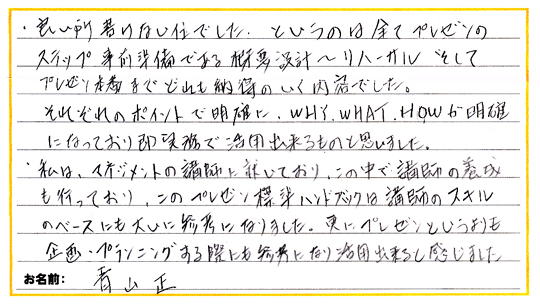 ・良い所書けない位でした. というのは全てプレゼンの
ステップ事前準備である概要設計〜リハーサル そして
プレゼン本番までどれも納得のいく内容でした。
それぞれのポイントで明確に、WHY.WHAT.HOWが明確
になっており即実務で活用出来るものと思いました。
・私は、マネジメントの講師に就いており、この中で講師の養成
も行っており、このプレゼン標準ハンドブックは講師のスキル
のベースにも大いに参考になりました。更にプレゼンというよりも
企画・プランニングする際にも参考になり活用出来ると感じました
お名前: 青山 正